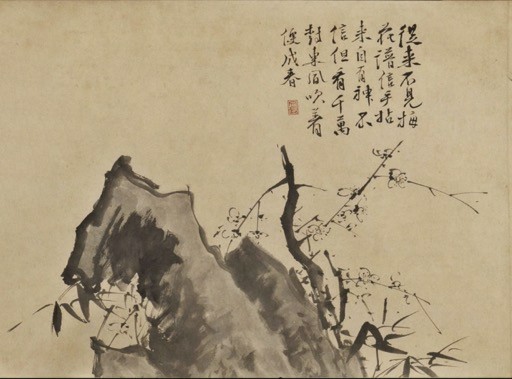 從来不見梅
花譜信手拈
来自有神不
信但看千萬
樹東風吹著
便成春